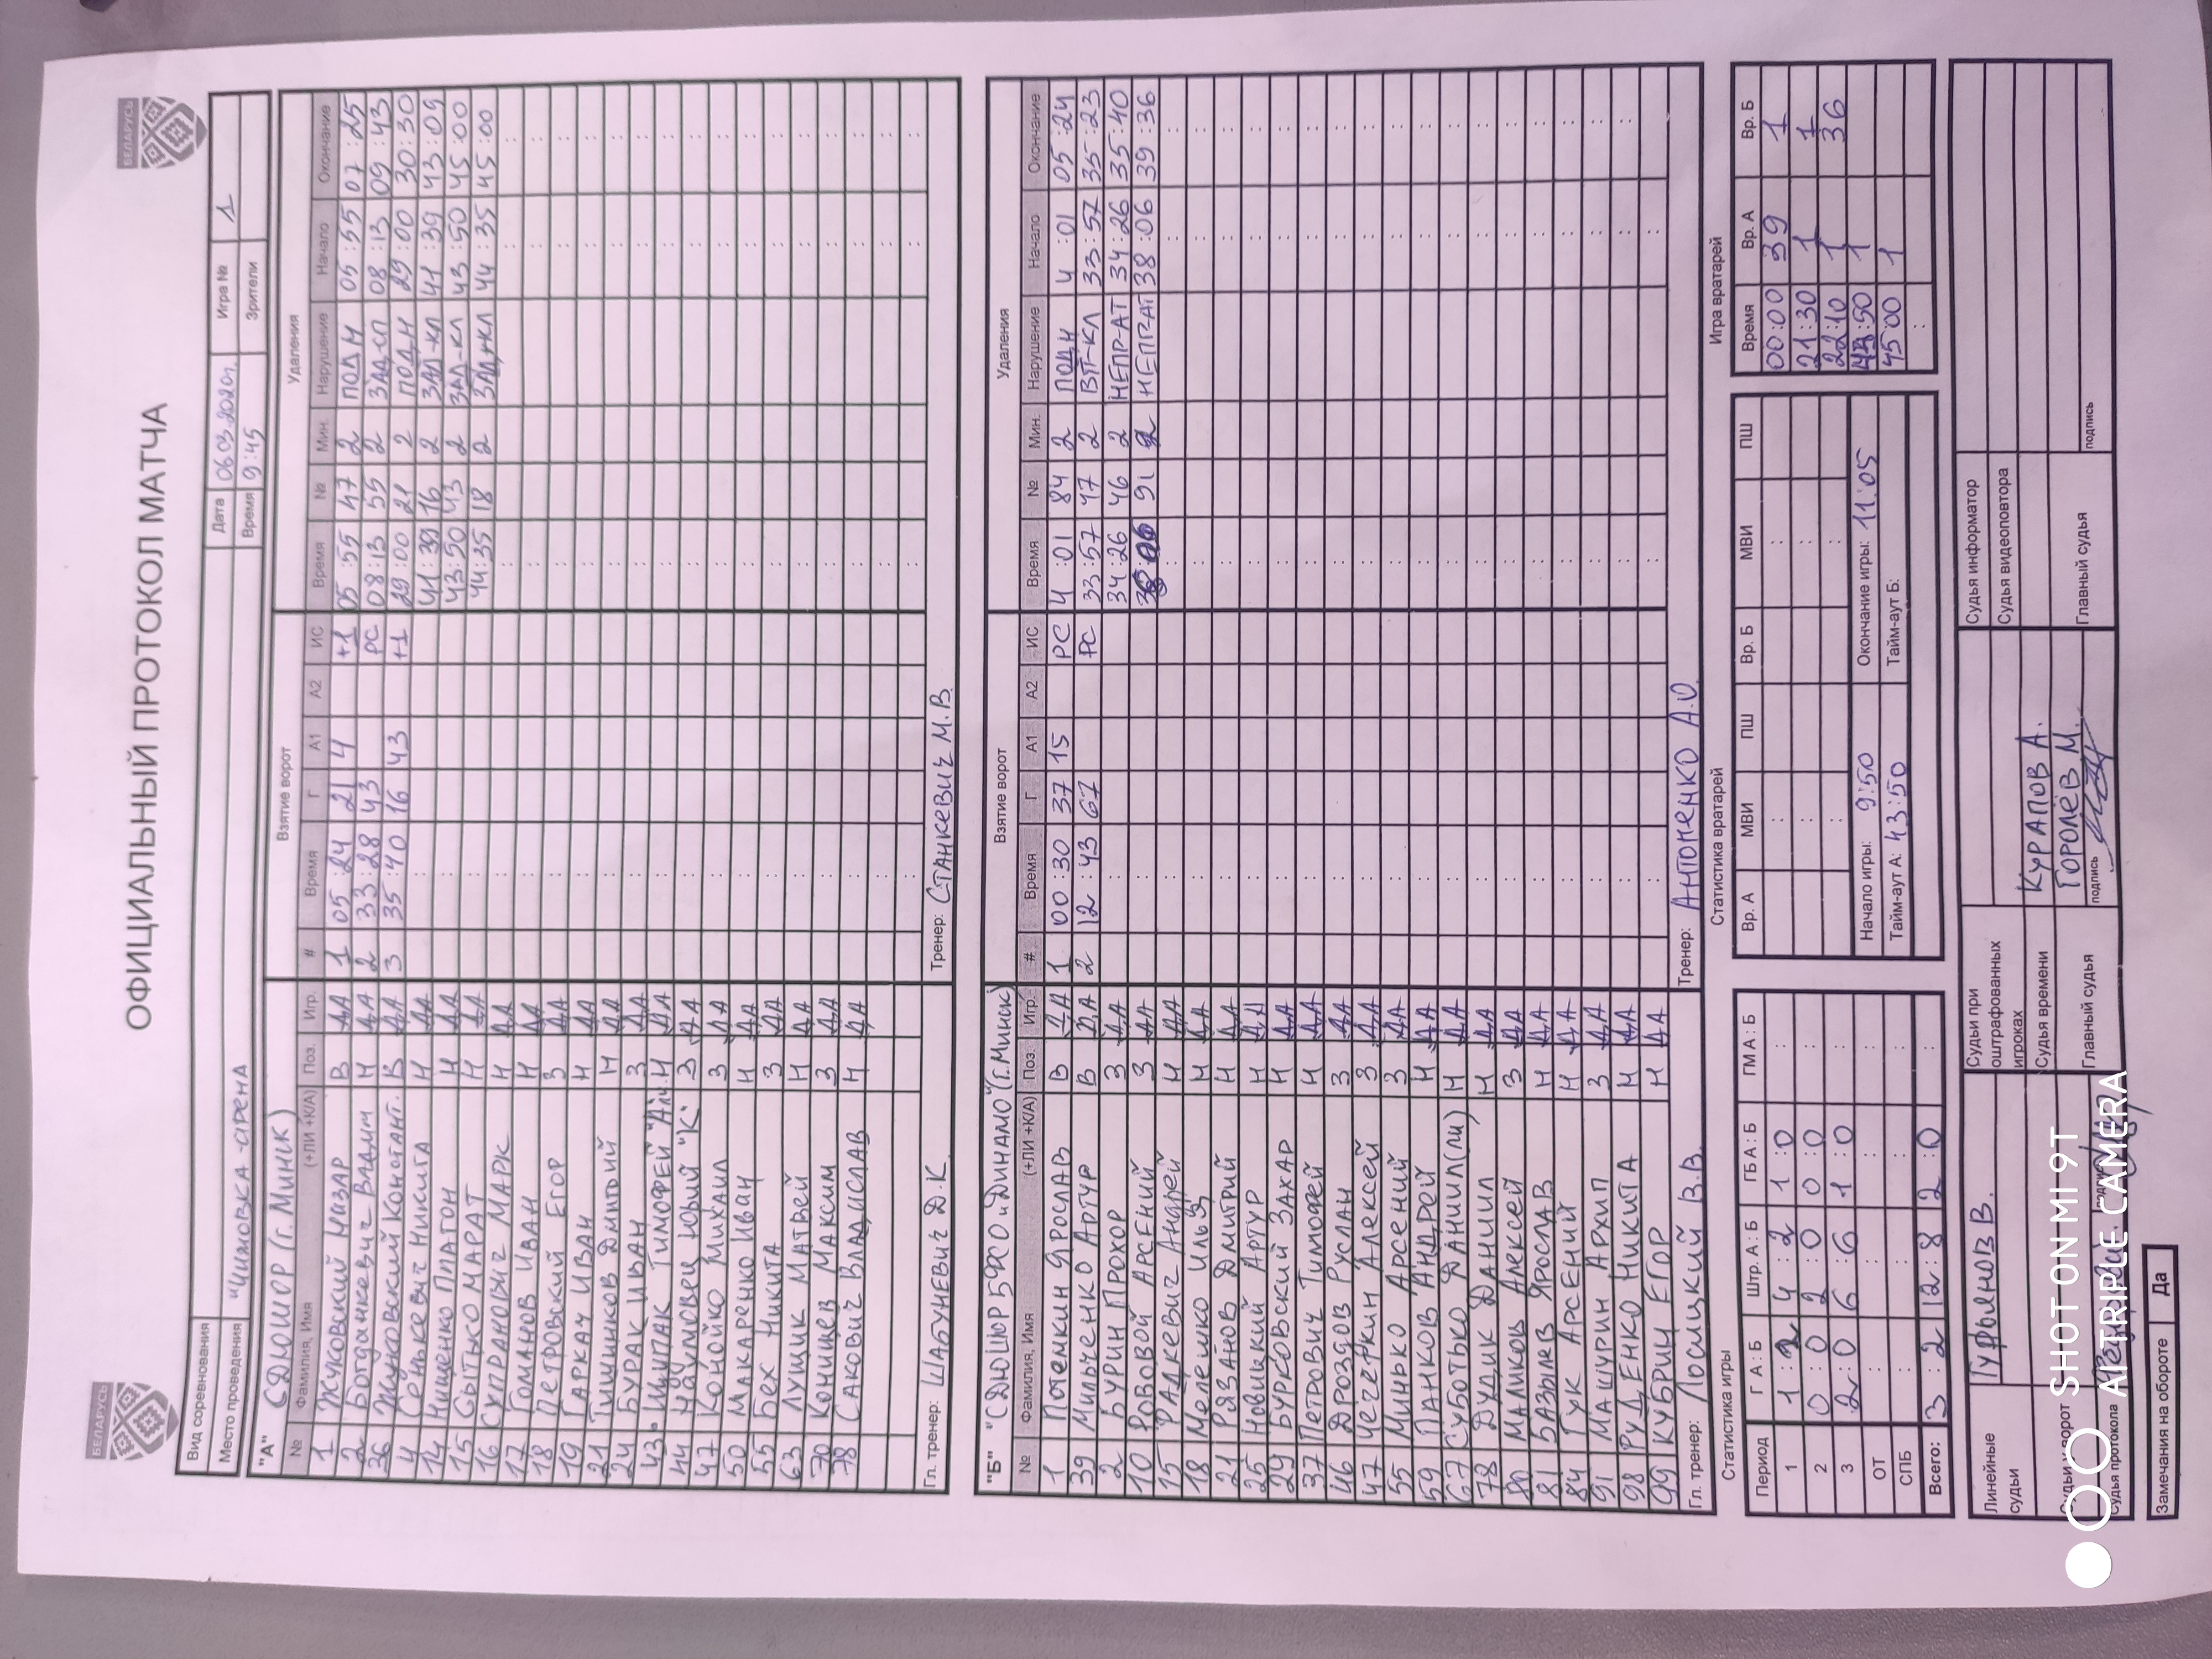 БЕЛАРУСЬ
БЕЛАРУСЬ
ОФИЦИАЛЬНЫЙ ПРОТОКОЛ МАТЧА
Вид соревнования Дата 06.03.2020г. Игра № 1
Место проведения "ЧИЖОВКА-АРЕНА Время 9:45 Зрители
"А" СДЮШОР (г. Минск) Взятие ворот Удаления
№ Фамилия, Имя (+ЛИ +К/А) Поз. Игр. # Время Г А1 А2 ИС Время № Мин. Нарушение Начало Окончание
1 Жуковский Назар В ДА 1 05:24 21 4 +1 05:55 47 2 ПОДН 05:55 07:25
2 Богданкевич Вадим Н ДА 2 33:28 43 РС 08:13 55 2 ЗАД-СП 08:13 09:43
36 Жуковский Констант. В ДА 3 35:40 16 43 +1 29:00 21 2 ПОДН 29:00 30:30
4 Сенькевич Никита Н ДА 41:39 16 2 ЗАД-КЛ 41:39 43:09
14 Нищенко Платон Н ДА 43:50 43 2 ЗАД-КЛ 43:50 45:00
15 Сытько Марат Н ДА 44:35 18 2 ЗАД-КЛ 44:35 45:00
16 Супранович Марк Н ДА
17 Томанов Иван Н ДА
18 Петровский Егор З ДА
19 Гаркач Иван Н ДА
21 Тишинков Дмитрий Н ДА
24 Бурак Иван З ДА
43 Щипак Тимофей "А" Н ДА
44 Наумовец Юрий "К" З ДА
47 Конойко Михаил З ДА
50 Макаренко Иван Н ДА
55 Бех Никита З ДА
63 Лущик Матвей Н ДА
70 Конищев Максим З ДА
78 Сакович Владислав Н ДА
Гл. тренер: Шабуневич Д.К. Тренер: Станкевич М.В.
"Б" "СДЮШОР БФСО "Динамо" (г. Минск) Взятие ворот Удаления
№ Фамилия, Имя (+ЛИ +К/А) Поз. Игр. # Время Г А1 А2 ИС Время № Мин. Нарушение Начало Окончание
1 Потемкин Ярослав В ДА 1 00:30 37 15 РС 4:01 84 2 ПОДН 4:01 05:24
39 Мильченко Артур В ДА 2 12:43 67 РС 33:57 47 2 ВП-КЛ 33:57 35:23
2 Бурин Прохор З ДА 34:26 46 2 НЕПР-АТ 34:26 35:40
10 Рововой Арсений З ДА 38:06 91 2 НЕПР-АТ 38:06 39:36
15 Радкевич Андрей Н ДА
18 Мелешко Илья Н ДА
21 Рязанов Дмитрий Н ДА
25 Новицкий Артур Н ДА
29 Бурковский Захар Н ДА
37 Петрович Тимофей Н ДА
46 Дроздов Руслан З ДА
47 Чечеткин Алексей З ДА
55 Минько Арсений З ДА
59 Панков Андрей Н ДА
67 Суботько Даниил (ли) Н ДА
78 Дудик Даниил Н ДА
80 Маликов Алексей З ДА
81 Базылев Ярослав Н ДА
84 Гук Арсений Н ДА
91 Мацурин Архип З ДА
98 Руденко Никита Н ДА
99 Кубриц Егор Н ДА
Гл. тренер: Лосицкий В.В. Тренер: Антоненко А.О.
Статистика игры Статистика вратарей Игра вратарей
Период Г А : Б Штр. А : Б ГБ А : Б ГМ А : Б Вр. А МВИ ПШ Вр. Б МВИ ПШ Время Вр. А Вр. Б
1 1:2 4:2 1:0 00:00 39 1
2 0:0 2:0 0:0 21:30 1 1
3 2:0 6:6 1:0 22:10 1 36
ОТ Начало игры: 9:50 Окончание игры: 11:05 43:50 1
СПБ Тайм-аут А: 43:50 Тайм-аут Б: 45:00 1
Всего: 3:2 12:8 2:0
Линейные судьи Гурьянов В. Судьи при оштрафованных игроках Судья информатор
Судья видеоповтора
Судьи ворот Судья времени Курапов А.
Горолёв М.
Судья протокола подпись Главный судья подпись Главный судья подпись
Замечания на обороте Да
SHOT ON MI 9T
AI TRIPLE CAMERA